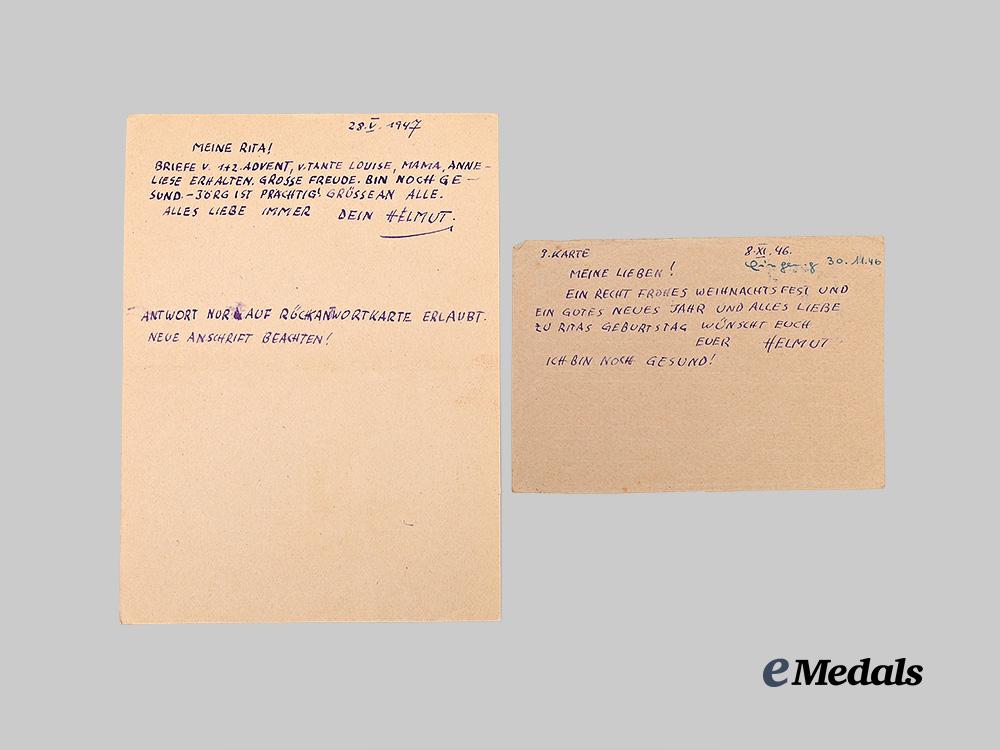 28.V. 1947
MEINE RITA!
BRIEFE V. 1+2. ADVENT, V. TANTE LOUISE, MAMA, ANNE-
LIESE ERHALTEN. GROSSE FREUDE. BIN NOCH GE-
SUND. - JÖRG IST PRÄCHTIG! GRÜSSE AN ALLE.
ALLES LIEBE IMMER DEIN HELMUT.
ANTWORT NUR AUF RÜCKANWORTKARTE ERLAUBT.
NEUE ANSCHRIFT BEACHTEN!
9. KARTE 8.XI.46.
Eingang 30.11.46
MEINE LIEBEN!
EIN RECHT FROHES WEIHNACHTSFEST UND
EIN GUTES NEUES JAHR UND ALLES LIEBE
ZU RITAS GEBURTSTAG WÜNSCHT EUCH
EUER HELMUT
ICH BIN NOCH GESUND!
eMedals